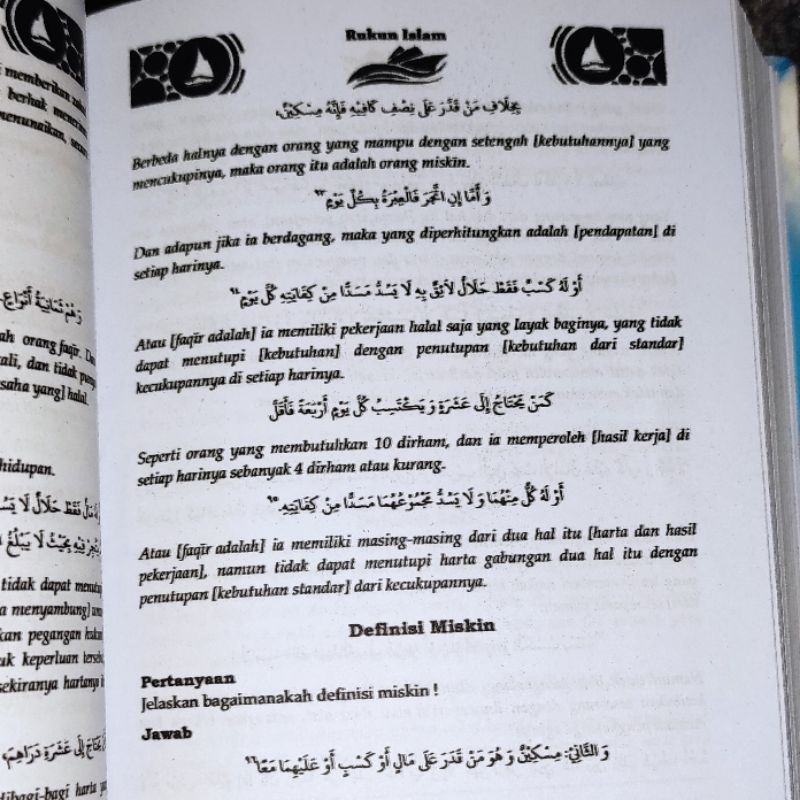 i memberikan
berhak
menunaikan,
وَهُمْ ثَمَانِيَةُ أَنْوَاعٍ
ah orang faqir.
ali, dan tidak
saha yang] halal.
hidupan.
مَالٌ فَقَطْ حَلَالٌ لَا يَسُدُّ
فِيْهِ بِحَيْثُ لَا يَبْلُغُ
tidak dapat
a menyambung]
kan pegangan
uk keperluan
sekiranya hartanya
يَحْتَاجُ إِلَى عَشَرَةِ دَرَاهِمَ،
dibagi-bagi harta
Rukun Islam
بِخِلَافِ مَنْ قَدَرَ عَلَى نِصْفِ كَافِيْهِ فَإِنَّهُ مِسْكِيْنٌ،
Berbeda halnya dengan orang yang mampu dengan setengah [kebutuhannya] yang
mencukupinya, maka orang itu adalah orang miskin.
وَ أَمَّا إِنِ اتَّجَرَ فَالْعِبْرَةُ بِكُلِّ يَوْمٍ ٩٣
Dan adapun jika ia berdagang, maka yang diperhitungkan adalah [pendapatan] di
setiap harinya.
أَوْ لَهُ كَسْبٌ فَقَطْ حَلَالٌ لَائِقٌ بِهِ لَا يَسُدُّ مَسَدًّا مِنْ كِفَايَتِهِ كُلَّ يَوْمٍ ٩٤
Atau [faqir adalah] ia memiliki pekerjaan halal saja yang layak baginya, yang tidak
dapat menutupi [kebutuhan] dengan penutupan [kebutuhan dari standar]
kecukupannya di setiap harinya.
كَمَنْ يَحْتَاجُ إِلَى عَشَرَةٍ وَ يَكْتَسِبُ كُلَّ يَوْمٍ أَرْبَعَةً فَأَقَلَّ
Seperti orang yang membutuhkan 10 dirham, dan ia memperoleh [hasil kerja] di
setiap harinya sebanyak 4 dirham atau kurang.
أَوْ لَهُ كُلٌّ مِنْهُمَا وَ لَا يَسُدُّ مَجْمُوْعُهُمَا مَسَدًّا مِنْ كِفَايَتِهِ. ٩٥
Atau [faqir adalah] ia memiliki masing-masing dari dua hal itu [harta dan hasil
pekerjaan], namun tidak dapat menutupi harta gabungan dua hal itu dengan
penutupan [kebutuhan standar] dari kecukupannya.
Definisi Miskin
Pertanyaan
Jelaskan bagaimanakah definisi miskin !
Jawab
وَ الثَّانِيْ: مِسْكِيْنٌ وَ هُوَ مَنْ قَدَرَ عَلَى مَالٍ أَوْ كَسْبٍ أَوْ عَلَيْهِمَا مَعًا ٩٦